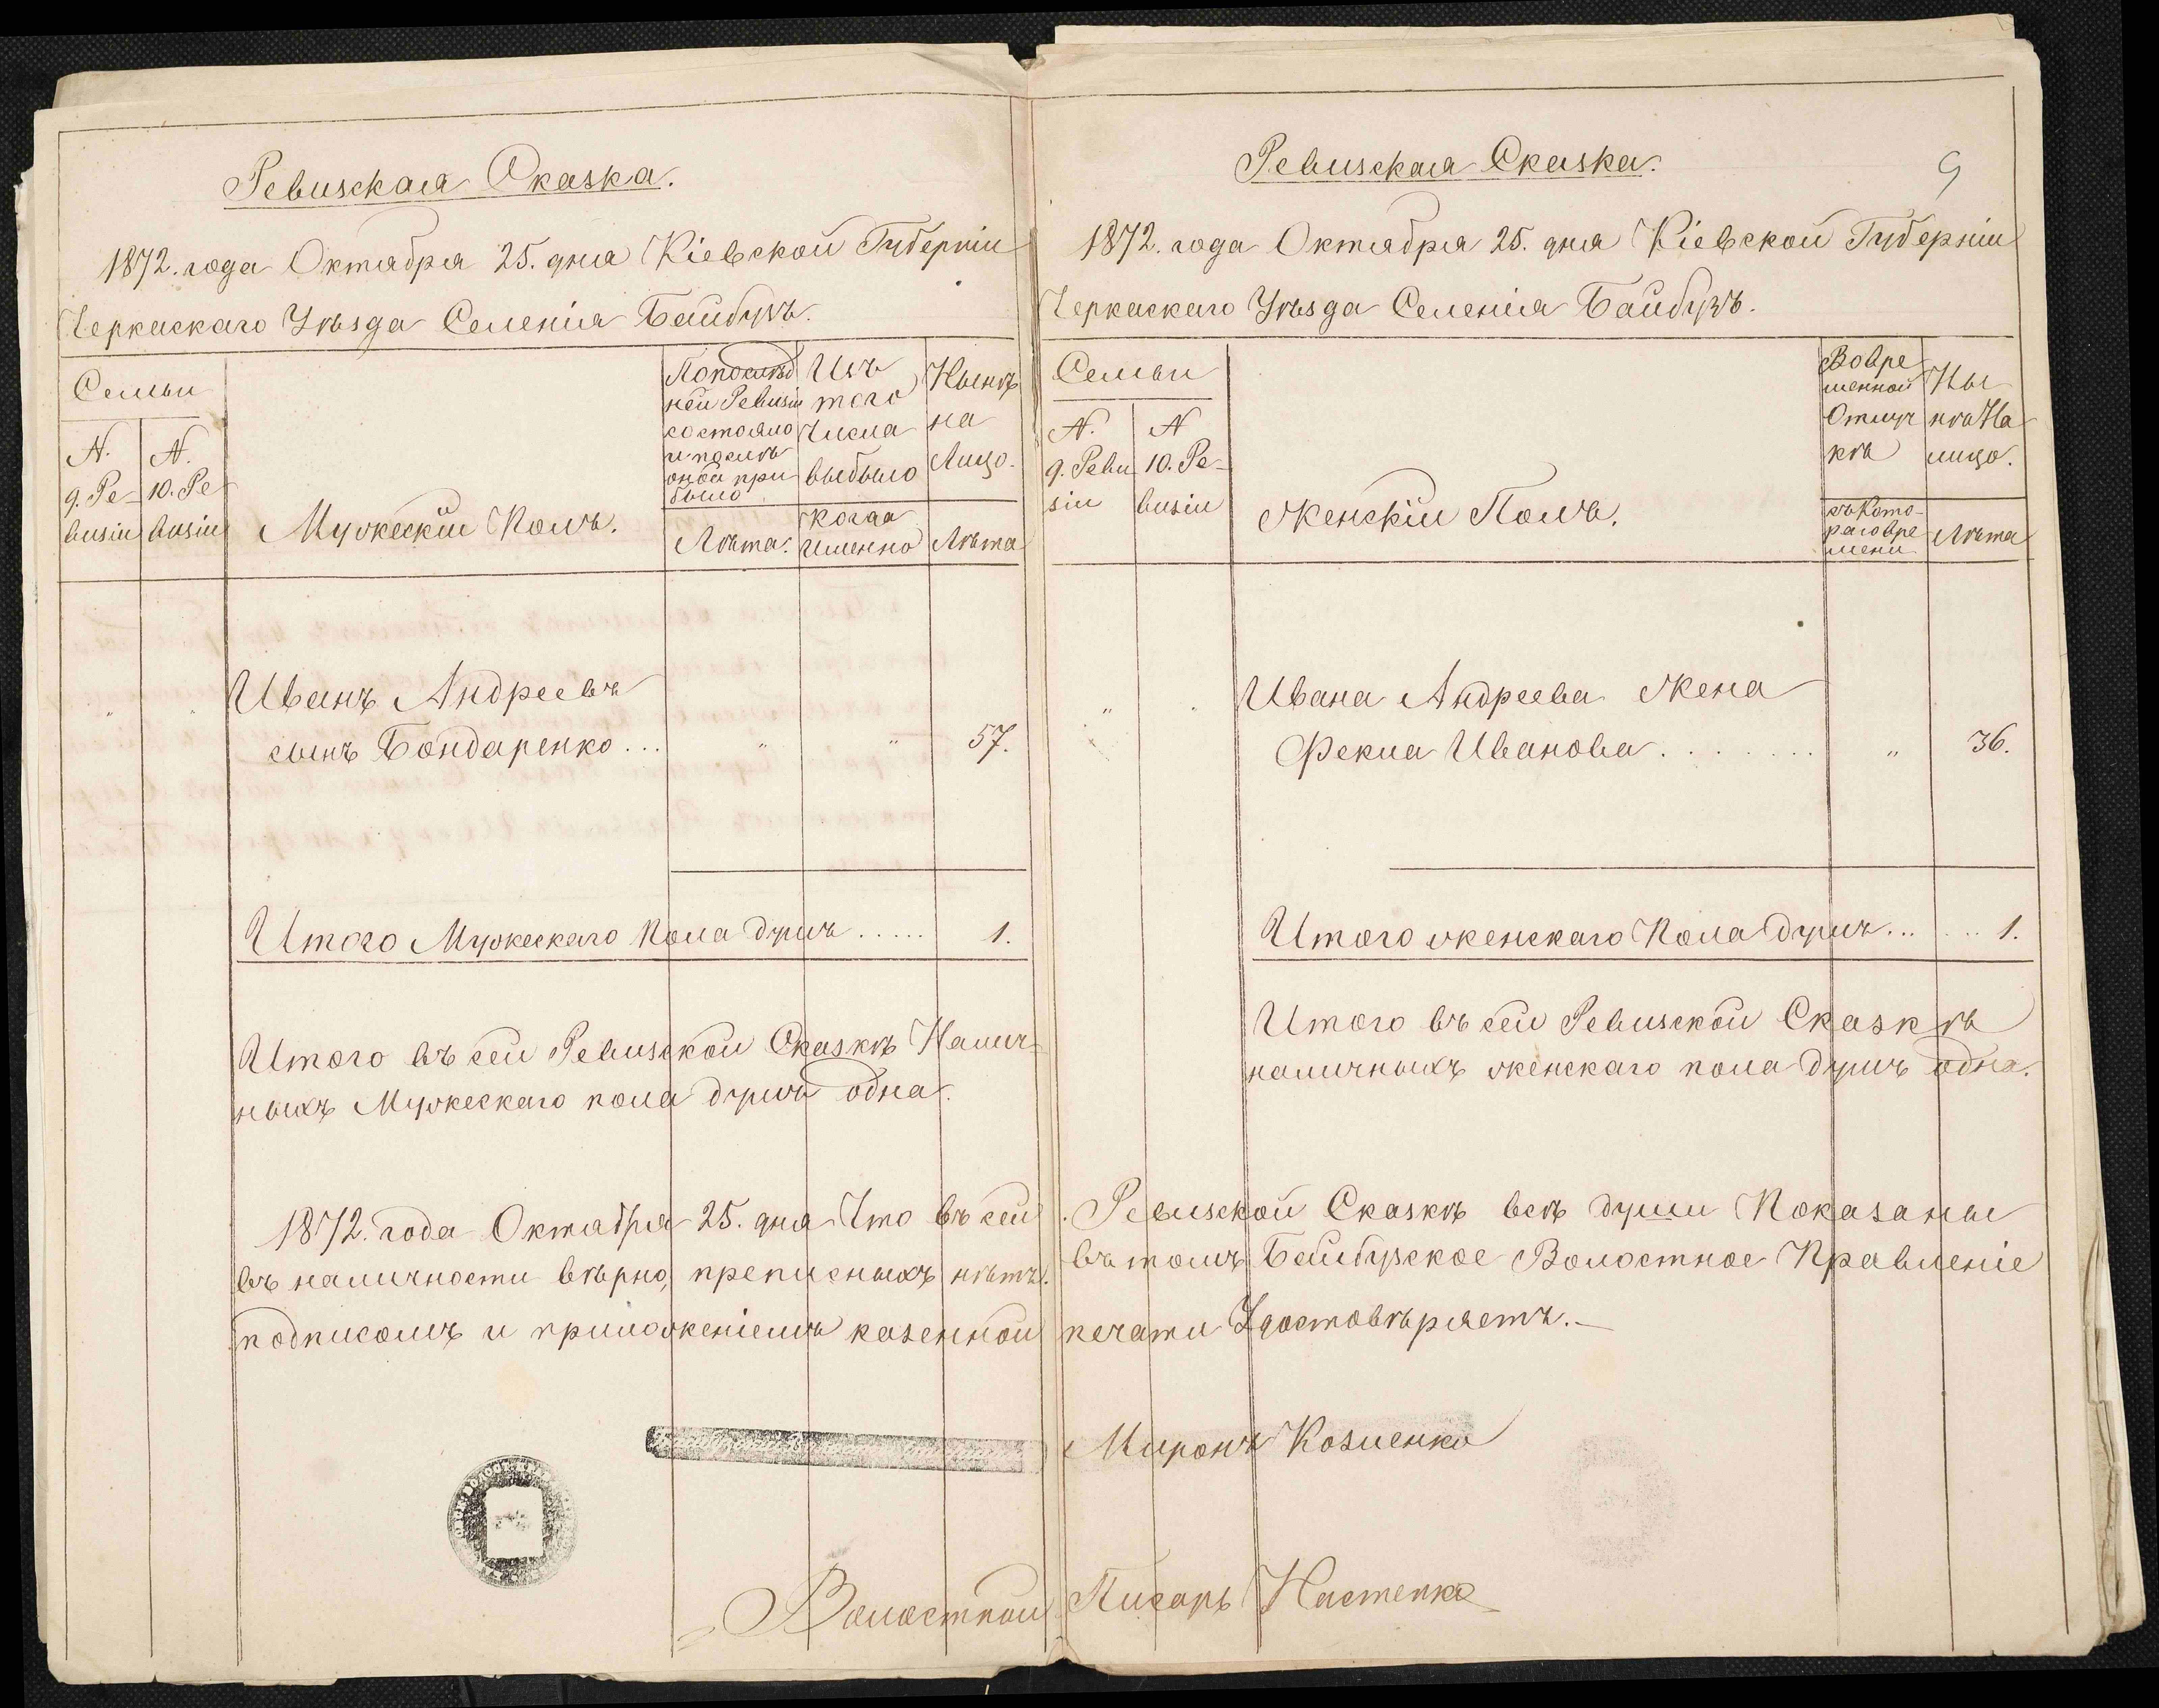 Ревизская Сказка.
1872. года Октября 25. дня Кіевской Губерніи
Черкаскаго Уѣзда Селенія Байбузъ.
Семьи
N. 9. Ре-
визіи
N. 10. Ре
визіи
Мужескій Полъ.
По послѣд
ней Ревизіи
состояло
и послѣ
оной при
было
Лѣта.
Изъ
того
числа
выбыло
когда
именно
Нынѣ
на
Лицо.
Лѣта
Иванъ Андреевъ
сынъ Бондаренко ...
" " 57.
Итого Мужескаго Пола душъ ..... 1.
Итого въ сей Ревизской Сказкѣ Налич-
ныхъ Мужескаго пола душъ одна.
Ревизская Сказка.
9
1872. года Октября 25. дня Кіевской Губерніи
Черкаскаго Уѣзда Селенія Байбузъ.
Семьи
N. 9. Реви
зіи
N 10. Ре-
визіи
Женскій Полъ.
Во вре
менной
Отлуч
кѣ
съ Кото-
раго вре
мени
Ны
нѣ На
лицо.
Лѣта
Ивана Андреева Жена
Фекла Иванова ....... " 36.
Итого женскаго Пола душъ ... ... 1.
Итого въ сей Ревизской Сказкѣ
наличныхъ женскаго пола душъ одна.
1872. года Октября 25. дня Что въ сей Ревизской Сказкѣ всѣ души Показаны
въ наличности вѣрно, прописныхъ нѣтъ. въ томъ Байбузское Волостное Правленіе
подписомъ и приложеніемъ казенной печати Удостовѣряетъ.—
Миронъ Козленко
Волостной Писарь Настенко